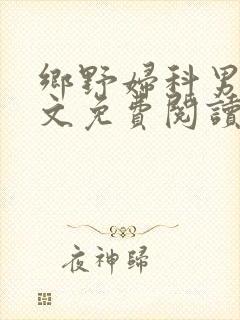 鄉野婦科男
文免費閱讀
夜神歸